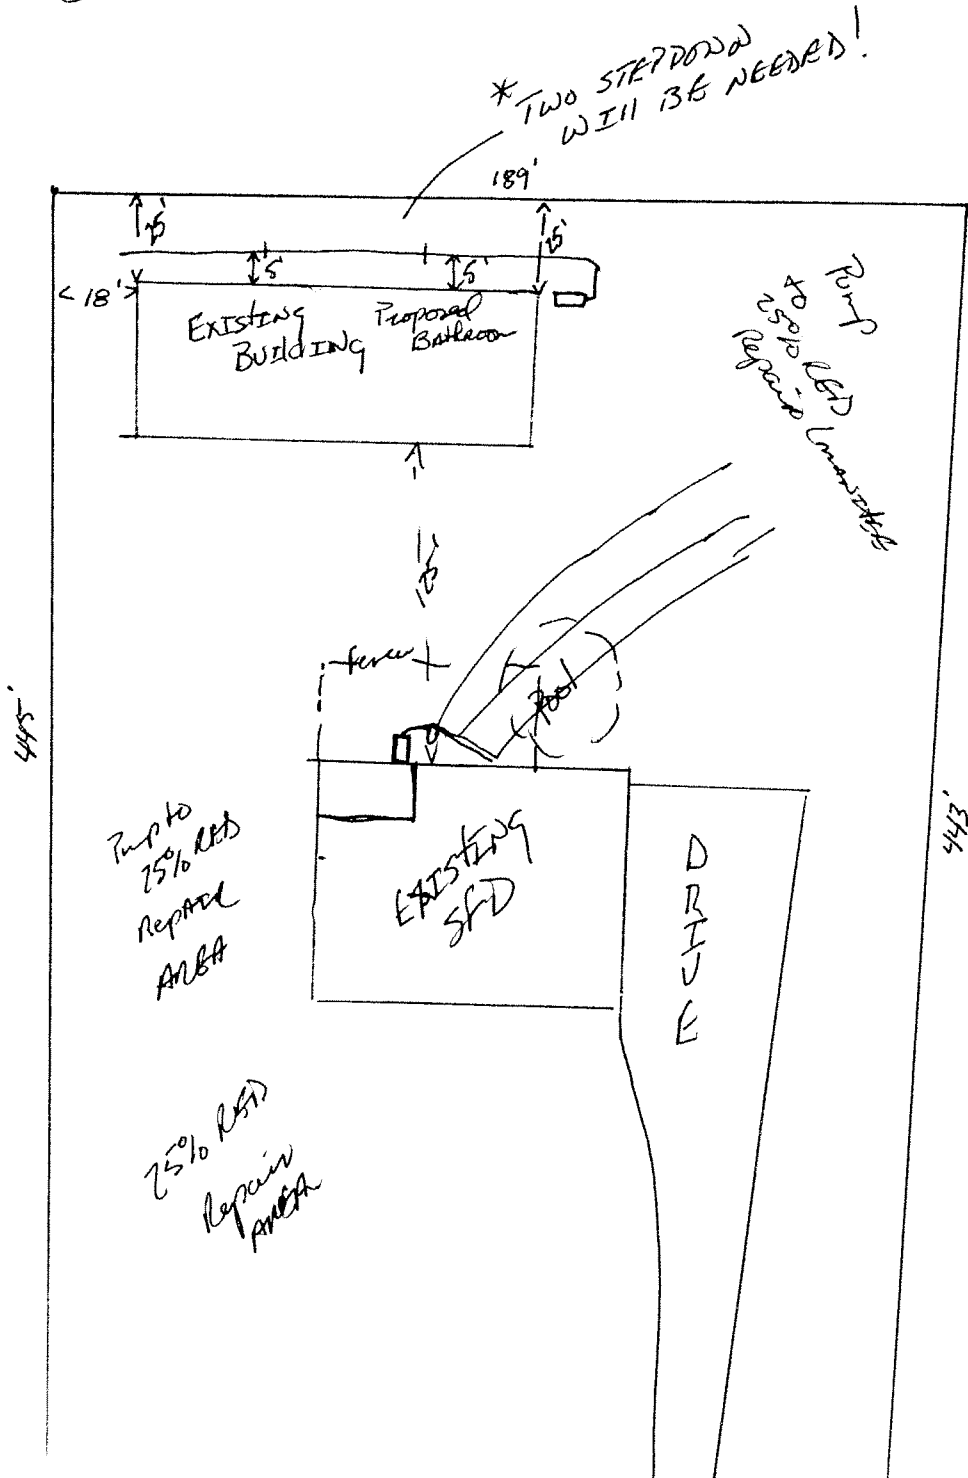 * TWO STEPDOWN
WILL BE NEEDED!
189'
25'
25'
5'
5'
< 18' >
EXISTING
BUILDING
Proposed
BATHROOM
Pump
to
25% RED
Repair
fence
Pool
445'
443'
Pump to
25% RED
REPAIR
AREA
EXISTING
SFD
DRIVE
25% RED
Repair
AREA